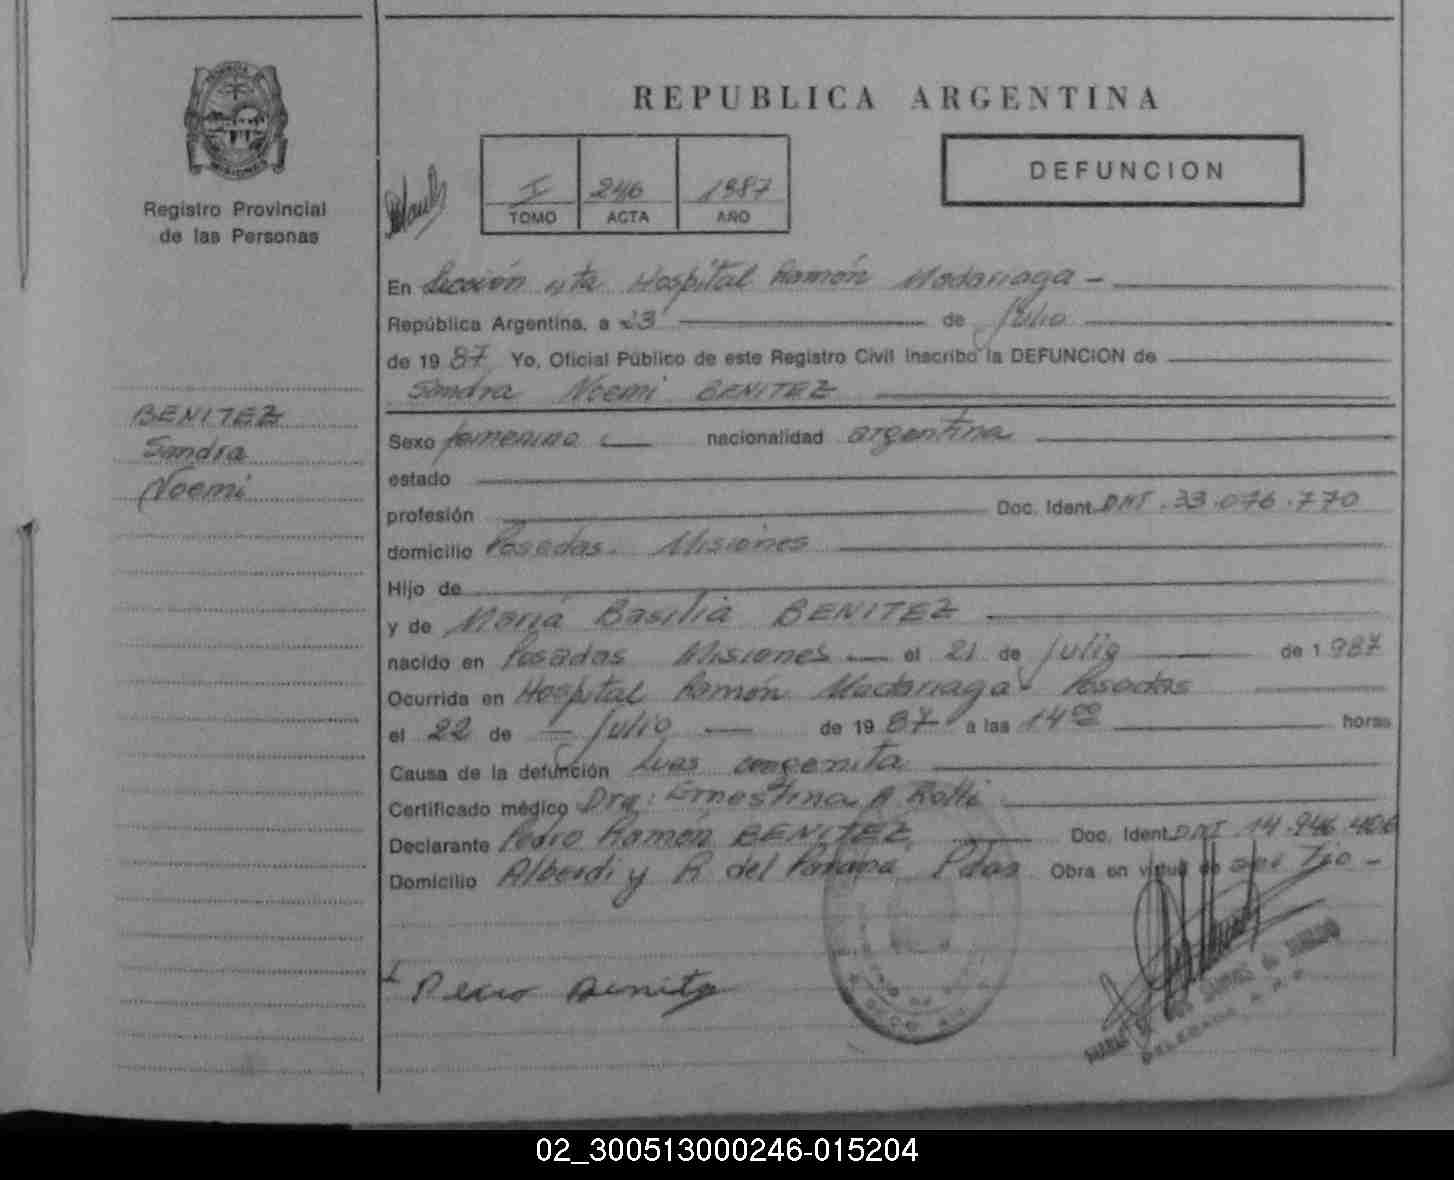 PROVINCIA DE
MISIONES
Registro Provincial
de las Personas
BENITEZ
Sandra
Noemi
REPUBLICA ARGENTINA
I 246 1987
TOMO ACTA AÑO
DEFUNCION
En Sección 4ta Hospital Ramón Madariaga -
República Argentina, a 23 de Julio
de 19 87 Yo, Oficial Público de este Registro Civil inscribo la DEFUNCION de
Sandra Noemi BENITEZ
Sexo femenino nacionalidad argentina
estado
profesión Doc. Ident. DNI. 33.076.770
domicilio Posadas. Misiones
Hijo de
y de María Basilia BENITEZ
nacido en Posadas Misiones el 21 de Julio de 1 987
Ocurrida en Hospital Ramón Madariaga Posadas
el 22 de Julio de 19 87 a las 14 00 horas
Causa de la defunción Lues congenita
Certificado médico Dra: Ernestina A. Rolli
Declarante Pedro Ramón BENITEZ Doc. Ident. DNI 14.946.406
Domicilio Alberdi y R. del Paraná Pdas Obra en virtud de ser Tio -
Pedro Benitez
DELEGADA
02_300513000246-015204